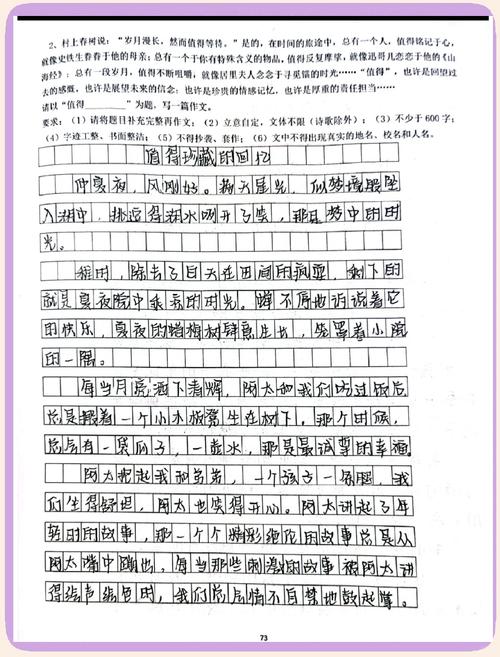 2、村上春树说：“岁月漫长，然而值得等待。”是的，在时间的旅途中，总有一个人，值得铭记于心，
就像史铁生眷眷于他的母亲；总有一个于你有特殊含义的物品，值得反复摩挲，就像迅哥儿恋恋于他的《山
海经》；总有一段岁月，值得不断咀嚼，就像居里夫人念念于寻觅镭的时光……“值得”，也许是回望过
去的感慨，也许是展望未来的信念；也许是珍贵的情感记忆，也许是厚重的责任担当……
请以“值得________”为题，写一篇作文。
要求：（1）请将题目补充完整再作文；（2）立意自定，文体不限（诗歌除外）；（3）不少于 600 字；
（4）字迹工整、书面整洁；（5）不得抄袭、套作；（6）文中不得出现真实的地名、校名和人名。
值得珍藏的回忆
仲夏夜，风刚好。满天星光，似梦境般坠
入湖中，挑逗得湖水咧开了笑，那是梦中的时
光。
程时，除去了白天在田间的疯耍，剩下的
就是夏夜院中乘凉的时光。蝉不停地诉说着它
的快乐，夏夜的蜡梅树肆意生长，笼罩着小院
的一隅。
每当月亮洒下清辉，阿太和我们吃过饭后
总是搬着一个小木板凳坐在树下。那个时候，
总有一袋瓜子，一壶水，那是最诚挚的幸福。
阿太抱起我和弟弟，一个孩子一条腿，我
们坐得舒坦，阿太也笑得开心。阿太讲起了年
轻时的故事，那一个个精彩绝伦的故事总是从
阿太嘴中蹦出，每当那些刺激的故事被阿太讲
得绘声绘色时，我们总情不自禁地鼓起掌。
73